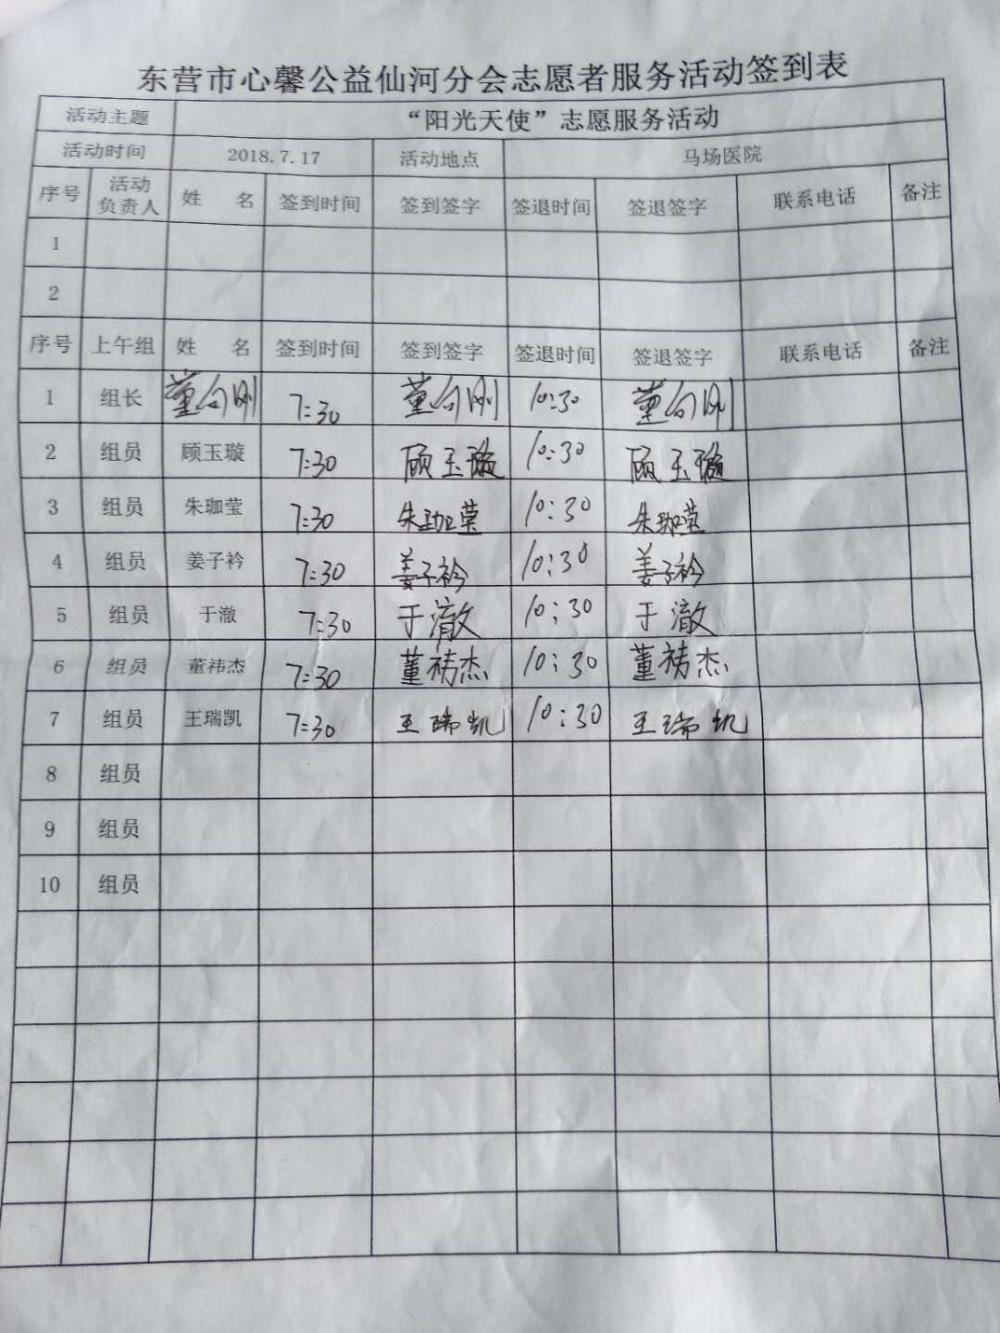 东营市心馨公益仙河分会志愿者服务活动签到表
活动主题 “阳光天使”志愿服务活动
活动时间 2018.7.17 活动地点 马场医院
序号 活动负责人 姓 名 签到时间 签到签字 签退时间 签退签字 联系电话 备注
1
2
序号 上午组 姓 名 签到时间 签到签字 签退时间 签退签字 联系电话 备注
1 组长 董向刚 7:30 董向刚 10:30 董向刚
2 组员 顾玉璇 7:30 顾玉璇 10:30 顾玉璇
3 组员 朱珈莹 7:30 朱珈莹 10:30 朱珈莹
4 组员 姜子衿 7:30 姜子衿 10:30 姜子衿
5 组员 于澈 7:30 于澈 10:30 于澈
6 组员 董祎杰 7:30 董祎杰 10:30 董祎杰
7 组员 王瑞凯 7:30 王瑞凯 10:30 王瑞凯
8 组员
9 组员
10 组员